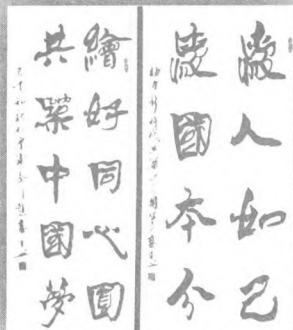 愛人如己
愛國本分
繪好同心圓
共築中國夢